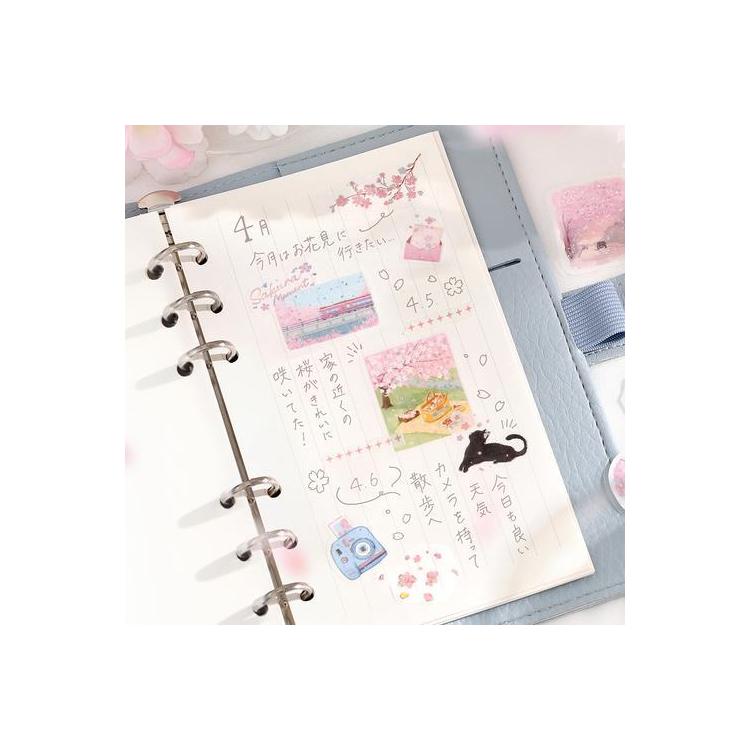 4月
今月はお花見に
行きたい…
Sakura
Moment
4.5
家の近くの
桜がきれいに
咲いてた！
4.6
今日も良い
天気
カメラを持って
散歩へ